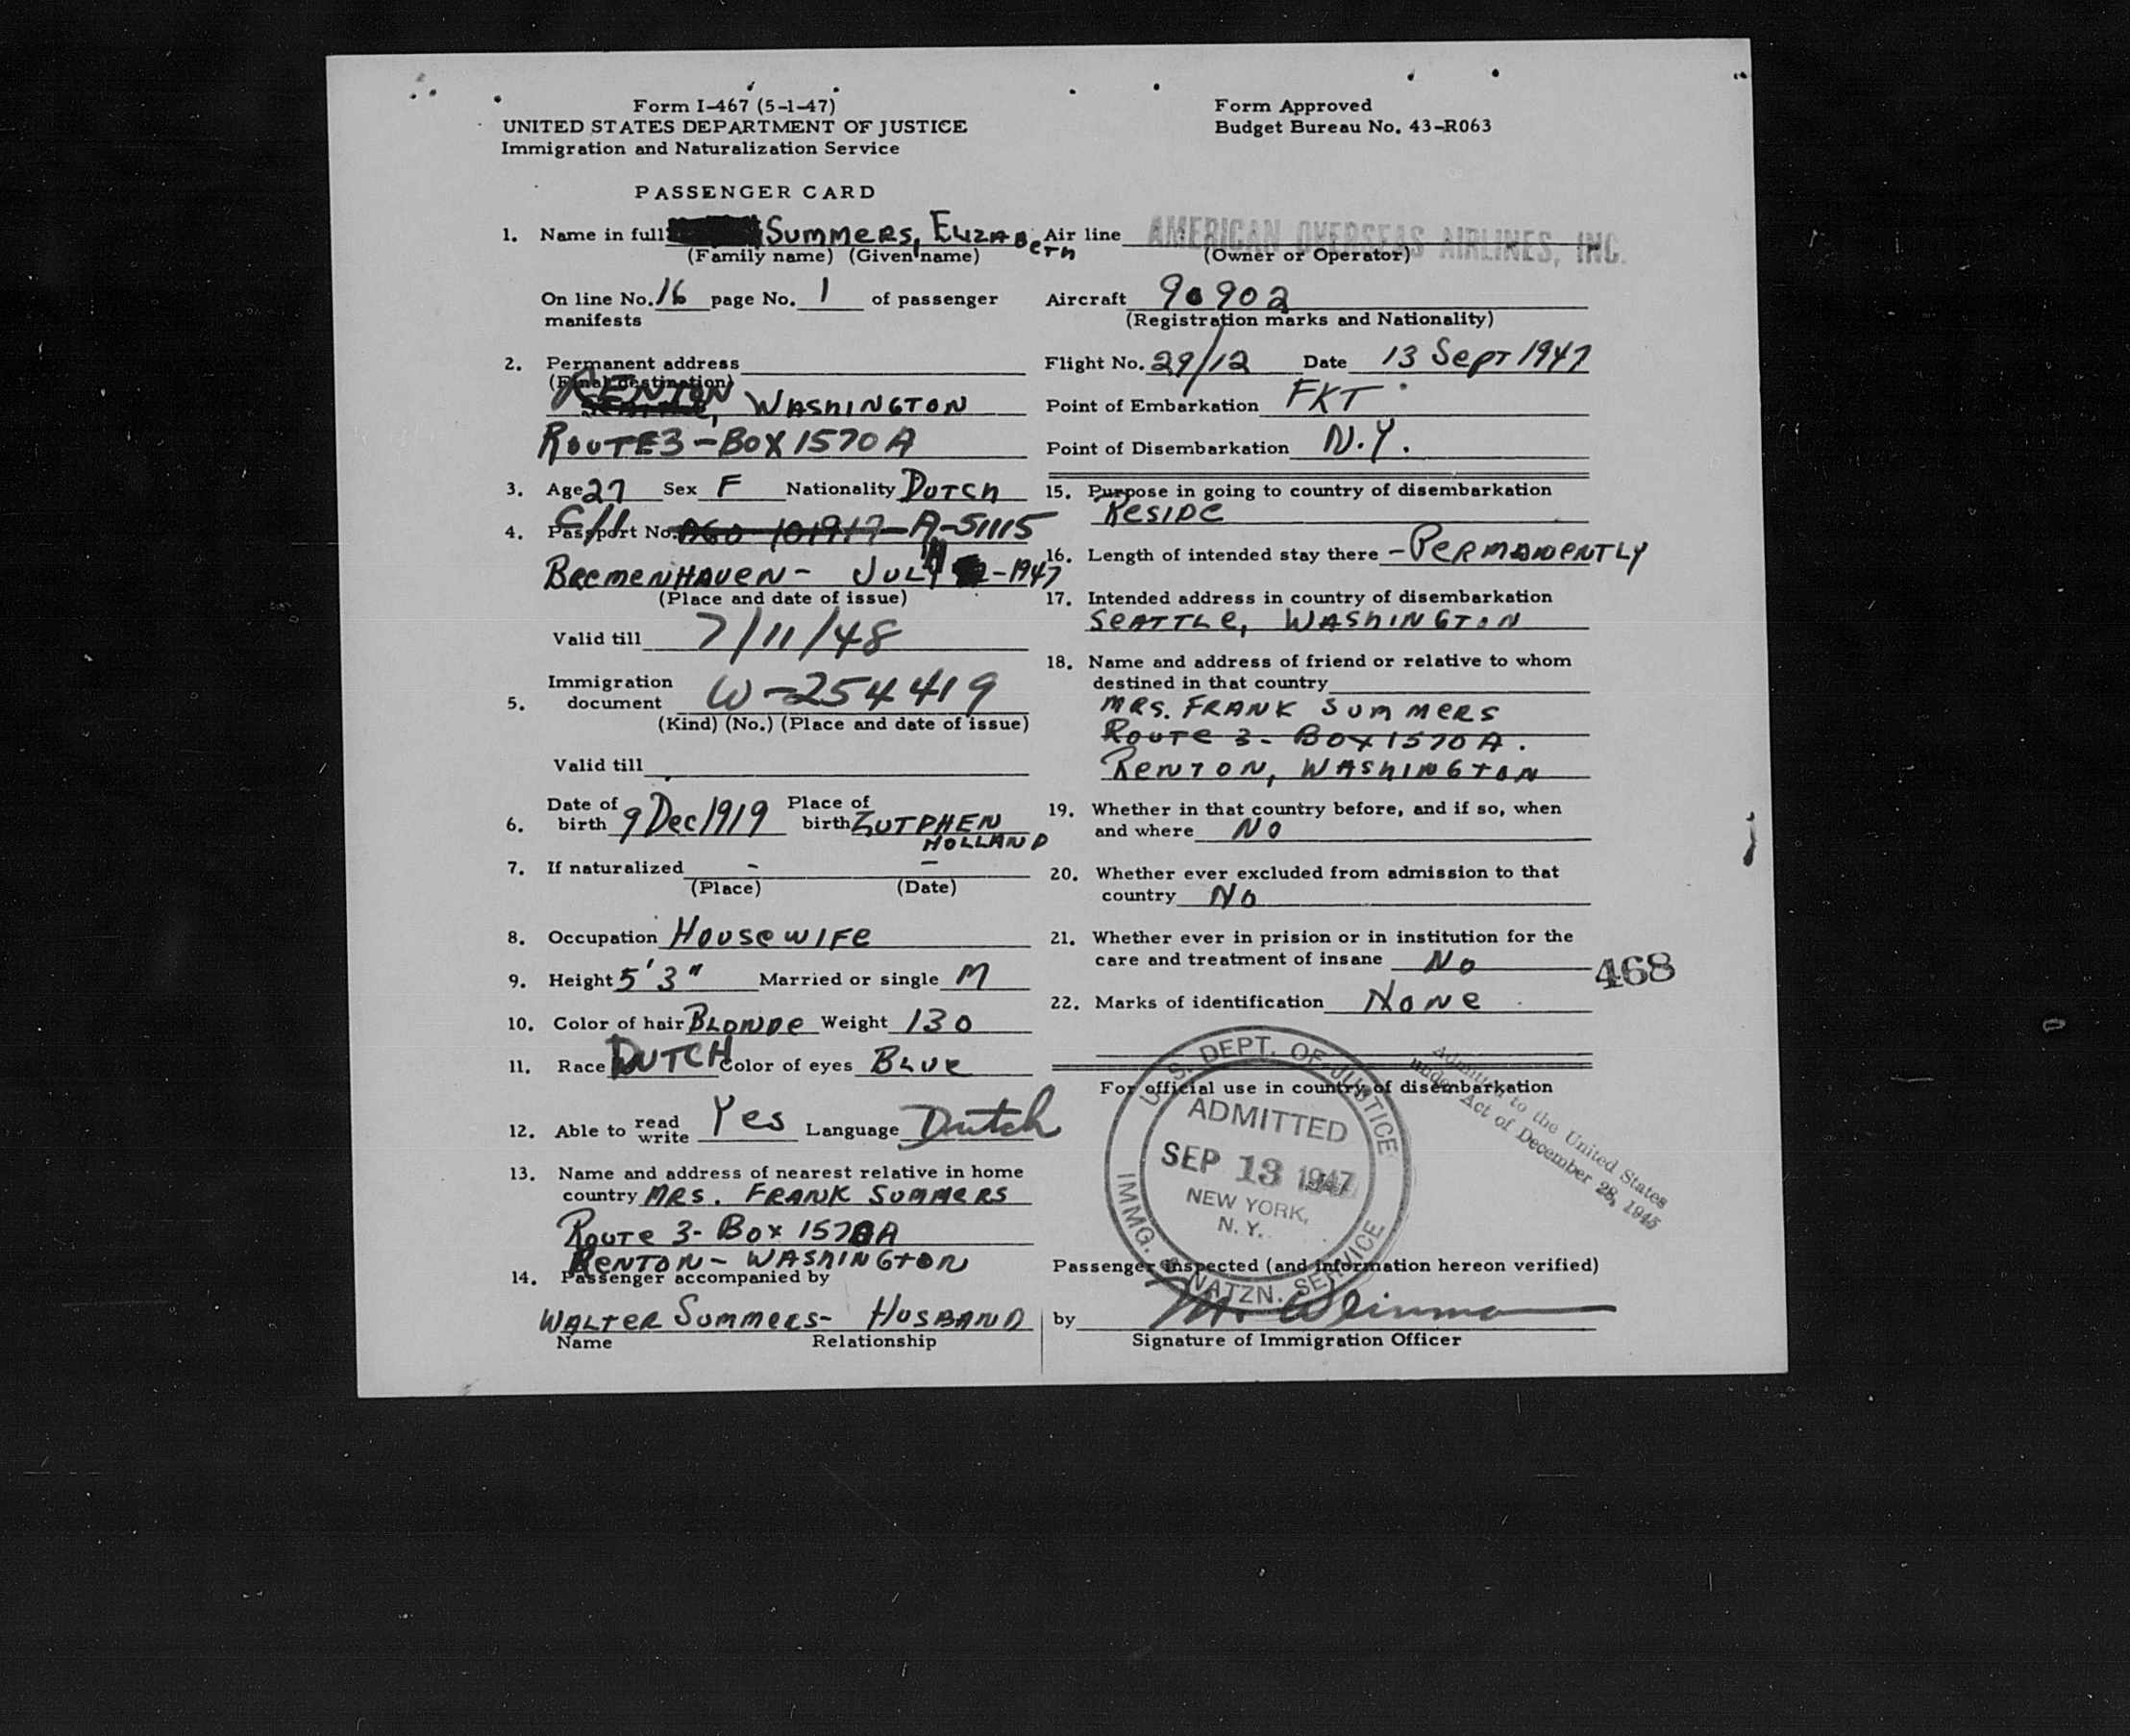 Form I-467 (5-1-47)
UNITED STATES DEPARTMENT OF JUSTICE
Immigration and Naturalization Service
Form Approved
Budget Bureau No. 43-R063
PASSENGER CARD
1. Name in full Summers, Elizabeth
(Family name) (Given name)
On line No. 16 page No. 1 of passenger
manifests
2. Permanent address
(Final destination)
RENTON, WASHINGTON
ROUTE 3 - BOX 1570 A
3. Age 27 Sex F Nationality DUTCH
4. Passport No. A-51115
BREMENHAVEN - JULY -1947
(Place and date of issue)
Valid till 7/11/48
5. Immigration
document W-254419
(Kind) (No.) (Place and date of issue)
Valid till
6. Date of birth 9 Dec 1919 Place of birth ZUTPHEN
HOLLAND
7. If naturalized - -
(Place) (Date)
8. Occupation HOUSEWIFE
9. Height 5'3" Married or single M
10. Color of hair BLONDE Weight 130
11. Race DUTCH Color of eyes BLUE
12. Able to read write Yes Language Dutch
13. Name and address of nearest relative in home
country MRS. FRANK SUMMERS
ROUTE 3- BOX 1570A
RENTON - WASHINGTON
14. Passenger accompanied by
WALTER SUMMERS- HUSBAND
Name Relationship
Air line AMERICAN OVERSEAS AIRLINES, INC.
(Owner or Operator)
Aircraft 90902
(Registration marks and Nationality)
Flight No. 29/12 Date 13 Sept 1947
Point of Embarkation FKT
Point of Disembarkation N.Y.
15. Purpose in going to country of disembarkation
RESIDE
16. Length of intended stay there - PERMANENTLY
17. Intended address in country of disembarkation
SEATTLE, WASHINGTON
18. Name and address of friend or relative to whom
destined in that country
MRS. FRANK SUMMERS
ROUTE 3- BOX 1570 A.
RENTON, WASHINGTON
19. Whether in that country before, and if so, when
and where NO
20. Whether ever excluded from admission to that
country NO
21. Whether ever in prision or in institution for the
care and treatment of insane NO
468
22. Marks of identification NONE
For official use in country of disembarkation
U. S. DEPT. OF JUSTICE
ADMITTED
SEP 13 1947
NEW YORK,
N. Y.
IMMG. & NATZN. SERVICE
Admitted to the United States
under Act of December 28, 1945
Passenger inspected (and information hereon verified)
by
Signature of Immigration Officer